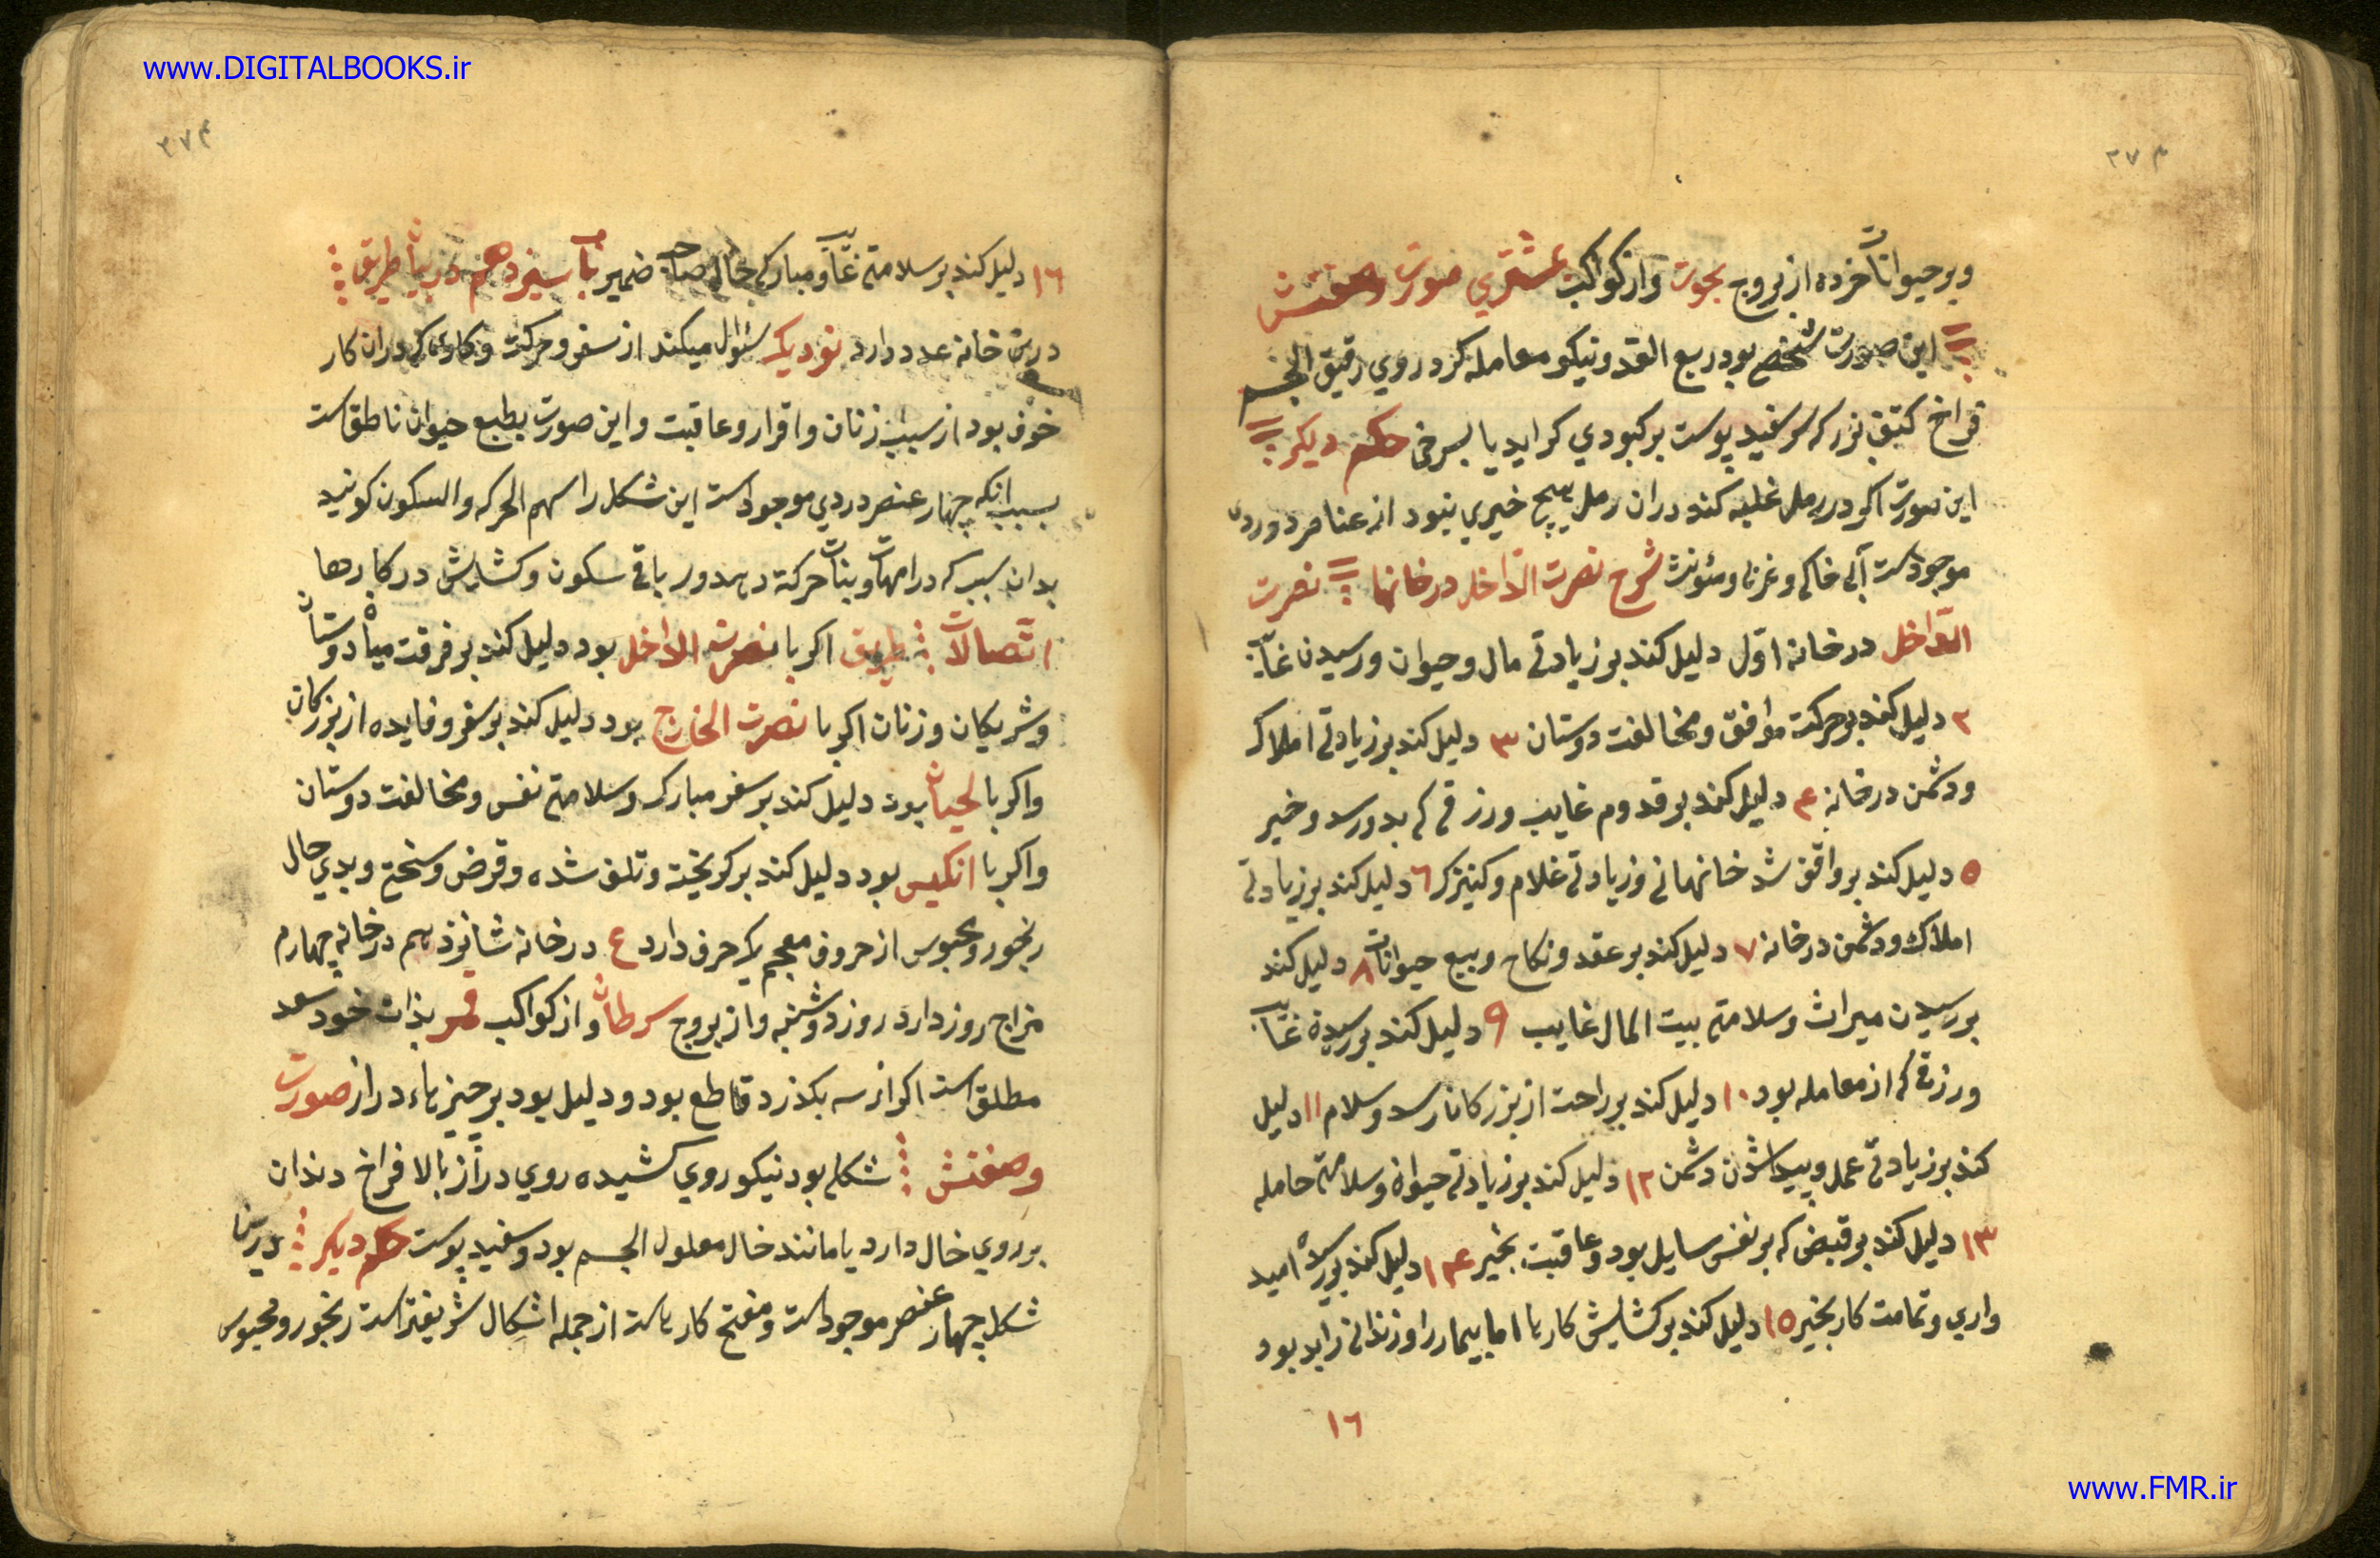 www.DIGITALBOOKS.ir
وبر حیوانات خرده از بروج بحوت واز کواکب مشتری صورت وصفتش
این صورت شخصی بود ربع القد ونیکو معامله کرد روی رقیق الجسم
فراخ کتف بزرک سر سفید پوست بر کبودی کراید یا بسرخی حکم دیکر
این صورت اکر در رمل غلبه کند دران رمل هیچ خیری نبود از عناصر دو درو
موجودست آبی خاکی وغربی ومئونث شرح نصرت الداخل در خانها نصرت
الداخل در خانه اول دلیل کند بر زیادتی مال وحیوان ورسیدن غایب
۲ دلیل کند بر حرکت موافق ومخالفت دوستان ۳ دلیل کند بر زیادتی املاک
ودشمن در خانه ۴ دلیل کند بر قدوم غایب ورزقی که بدو رسد وخیر
۵ دلیل کند بر واقف شد خانهانی وزیادتی غلام وکنیزک ۶ دلیل کند بر زیادتی
املاک ودشمن در خانه ۷ دلیل کند بر عقد ونکاح وبیع حیوانات ۸ دلیل کند
بر رسیدن میراث وسلامتی بیت المال غایب ۹ دلیل کند بر رسیدن غایب
ورزقی که از معامله بود ۱۰ دلیل کند بر راحت از بزرکان رسد وسلام ۱۱ دلیل
کند بر زیادتی عمل وپیدا شدن دشمن ۱۲ دلیل کند بر زیادتی حیوان وسلامتی حامله
۱۳ دلیل کند بر قبض که بر نفس سایل بود وعاقبت بخیر ۱۴ دلیل کند بر امید
واری وتمامت کار بخیر ۱۵ دلیل کند بر کشایش کارها اما بیمار را وزندانی را بد بود
۱۶
۱۶ دلیل کند بر سلامتی غایب ومبارکی حال صاحب ضمیر باب سیزدهم در بیان طریق
درین خانه عدد دارد نود یک سئوال میکند از سفر وحرکت وکاری که دران کار
خوف بود از سبب زنان واقرار وعاقبت واین صورت بطبع حیوان ناطق است
بسبب انکه چهار عنصر در وی موجود است این شکل را سهم الحرکه والسکون کویند
بدان سبب که در امهات وبنات حرکة دهد ودر باقی سکون وکشایش در کارها
اتصالات طریق اکر با نصرت الداخل بود دلیل کند بر فرقت میان دوستان
وشریکان وزنان اکر با نصرت الخارج بود دلیل کند بر سفر وفایده از بزرکان
واکر با لحیان بود دلیل کند بر سفر مبارک وسلامتی نفس ومخالفت دوستان
واکر با انکیس بود دلیل کند بر کریخته وتلف شده وقرض وسختی وبدی حال
رنجور ومحبوس از حروف معجم یک حرف دارد ع در خانه شانزدهم در خانه چهارم
مزاج روز دارد روز دوشنبه واز بروج سرطان واز کواکب قمر بذات خود سعد
مطلق است اکر از سه بکذرد قاطع بود ودلیل بود بر چیزهاء دراز صورت
وصفتش شکلی بود نیکو روی کشیده روی دراز بالا فراخ دندان
بر روی خال دارد یا مانند خال معلول الجسم بود وسفید پوست حکم دیکر درین
شکل چهار عنصر موجودست ومفتح کارهاست از جمله اشکال شریفتر است رنجور ومحبوس
www.FMR.ir